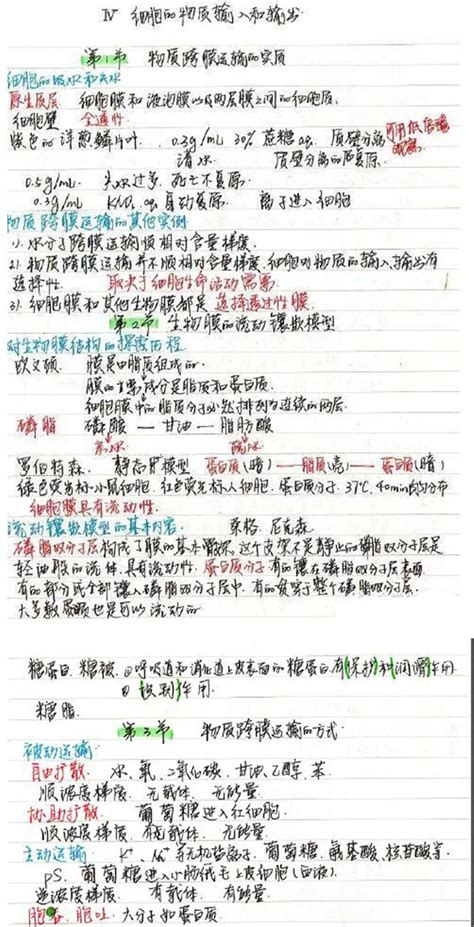 Ⅳ 细胞的物质输入和输出
第1节 物质跨膜运输的实质
细胞的吸水和失水
原生质层 细胞膜和液泡膜以及两层膜之间的细胞质
细胞壁 全透性
紫色的洋葱鳞片叶 0.3g/mL 30% 蔗糖aq. 质壁分离 可用低倍镜观察
清水 质壁分离的复原
0.5g/mL 失水过多 死亡不复原
0.3g/mL KNO₃ aq. 自动复原 离子进入细胞
物质跨膜运输的其他实例
1). 水分子跨膜运输顺相对含量梯度
2). 物质跨膜运输并不顺相对含量梯度,细胞对物质的输入、输出有
选择性 取决于细胞生命活动需要
3). 细胞膜和其他生物膜都是选择透过性膜
第2节 生物膜的流动镶嵌模型
对生物膜结构的探索历程
欧文顿 膜是由脂质组成的
膜的主要成分是脂质和蛋白质
细胞膜中的脂质分子必然排列为连续的两层
磷脂 磷酸 — 甘油 — 脂肪酸
亲水 疏水
罗伯特森 静态的模型 蛋白质(暗)—脂质(亮)—蛋白质(暗)
绿色荧光标小鼠细胞 红色荧光标人细胞 蛋白质分子 37℃ 40min均匀分布
细胞膜具有流动性
流动镶嵌模型的基本内容 桑格 尼克森
磷脂双分子层构成了膜的基本骨架,这个支架不是静止的磷脂双分子层是
轻油般的流体,具有流动性 蛋白质分子有的镶在磷脂双分子层表面
有的部分或全部镶入磷脂双分子层中,有的贯穿于整个磷脂双分子层
大多数蛋白质也是可以流动的
糖蛋白 糖被 ①呼吸道和消化道上皮表面的糖蛋白有保护和润滑作用
②识别作用
糖脂
第3节 物质跨膜运输的方式
被动运输
自由扩散 水、氧、二氧化碳、甘油、乙醇、苯
顺浓度梯度 无载体 无能量
协助扩散 葡萄糖进入红细胞
顺浓度梯度 有载体 无能量
主动运输 K⁺、Na⁺等无机盐离子、葡萄糖、氨基酸、核苷酸等
pS. 葡萄糖进入小肠绒毛上皮细胞
逆浓度梯度 有载体 有能量
胞吞、胞吐 大分子如蛋白质